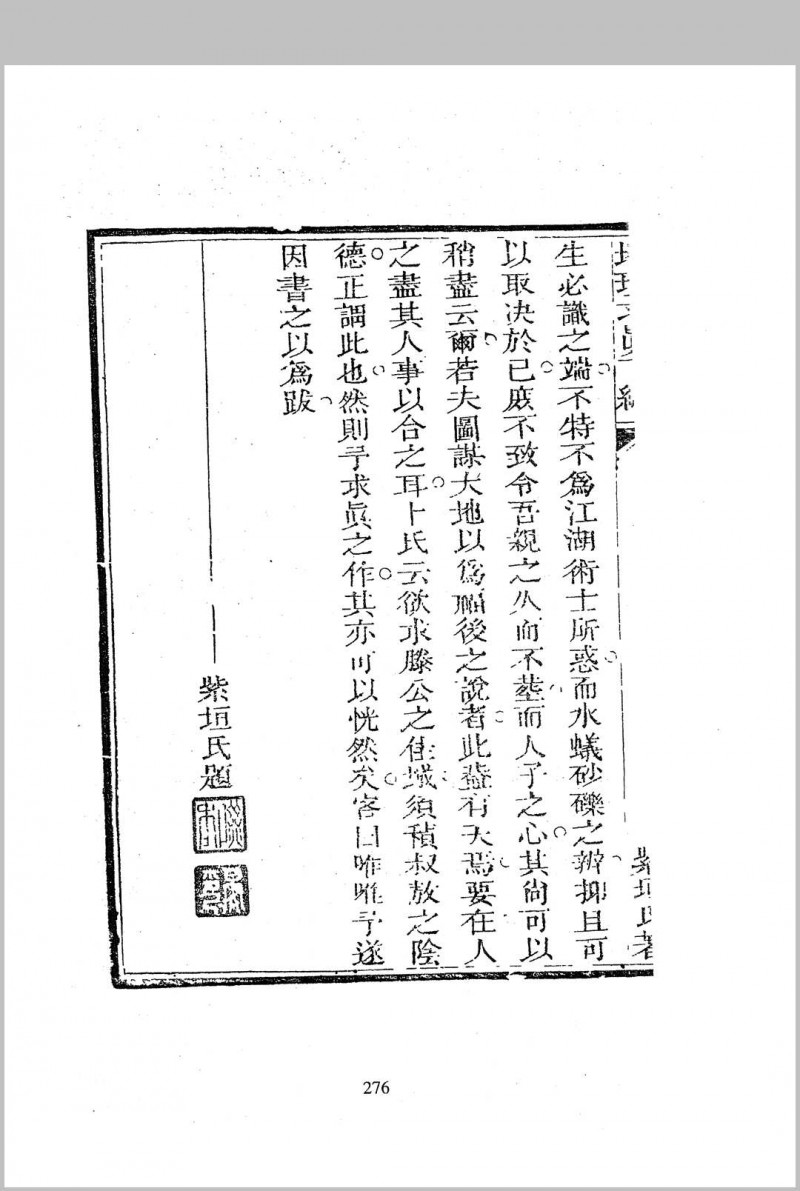 紫垣氏著
生必識之端不特不爲江湖術士所惑而水蟻砂礫之辨抑且可
以取決於已庶不致令吾親之久而不塟而人子之心其尙可以
稍盡云爾若夫圖謀大地以爲福後之說者此蓋有天焉要在人
之盡其人事以合之耳卜氏云欲求滕公之佳城須積叔敖之陰
德正謂此也然則予求眞之作其亦可以恍然矣客曰唯唯予遂
因書之以爲跋
紫垣氏題
276